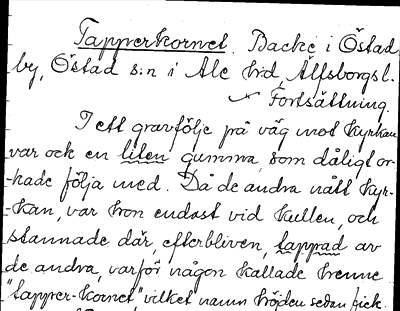 Tapperkornet. Backe i Östad
by, Östad s:n i Ale hrd, Älfsborgs l.
Fortsättning.
I ett gravfölje på väg mot kyrkan
var ock en liten gumma, som dåligt or-
-kade följa med. Då de andra nått kyr-
-kan, var hon endast vid kullen, och
stannade där, efterbliven, tappad av
de andra, varför någon kallade henne
"tapper-kornet", vilket namn höjden sedan fick.